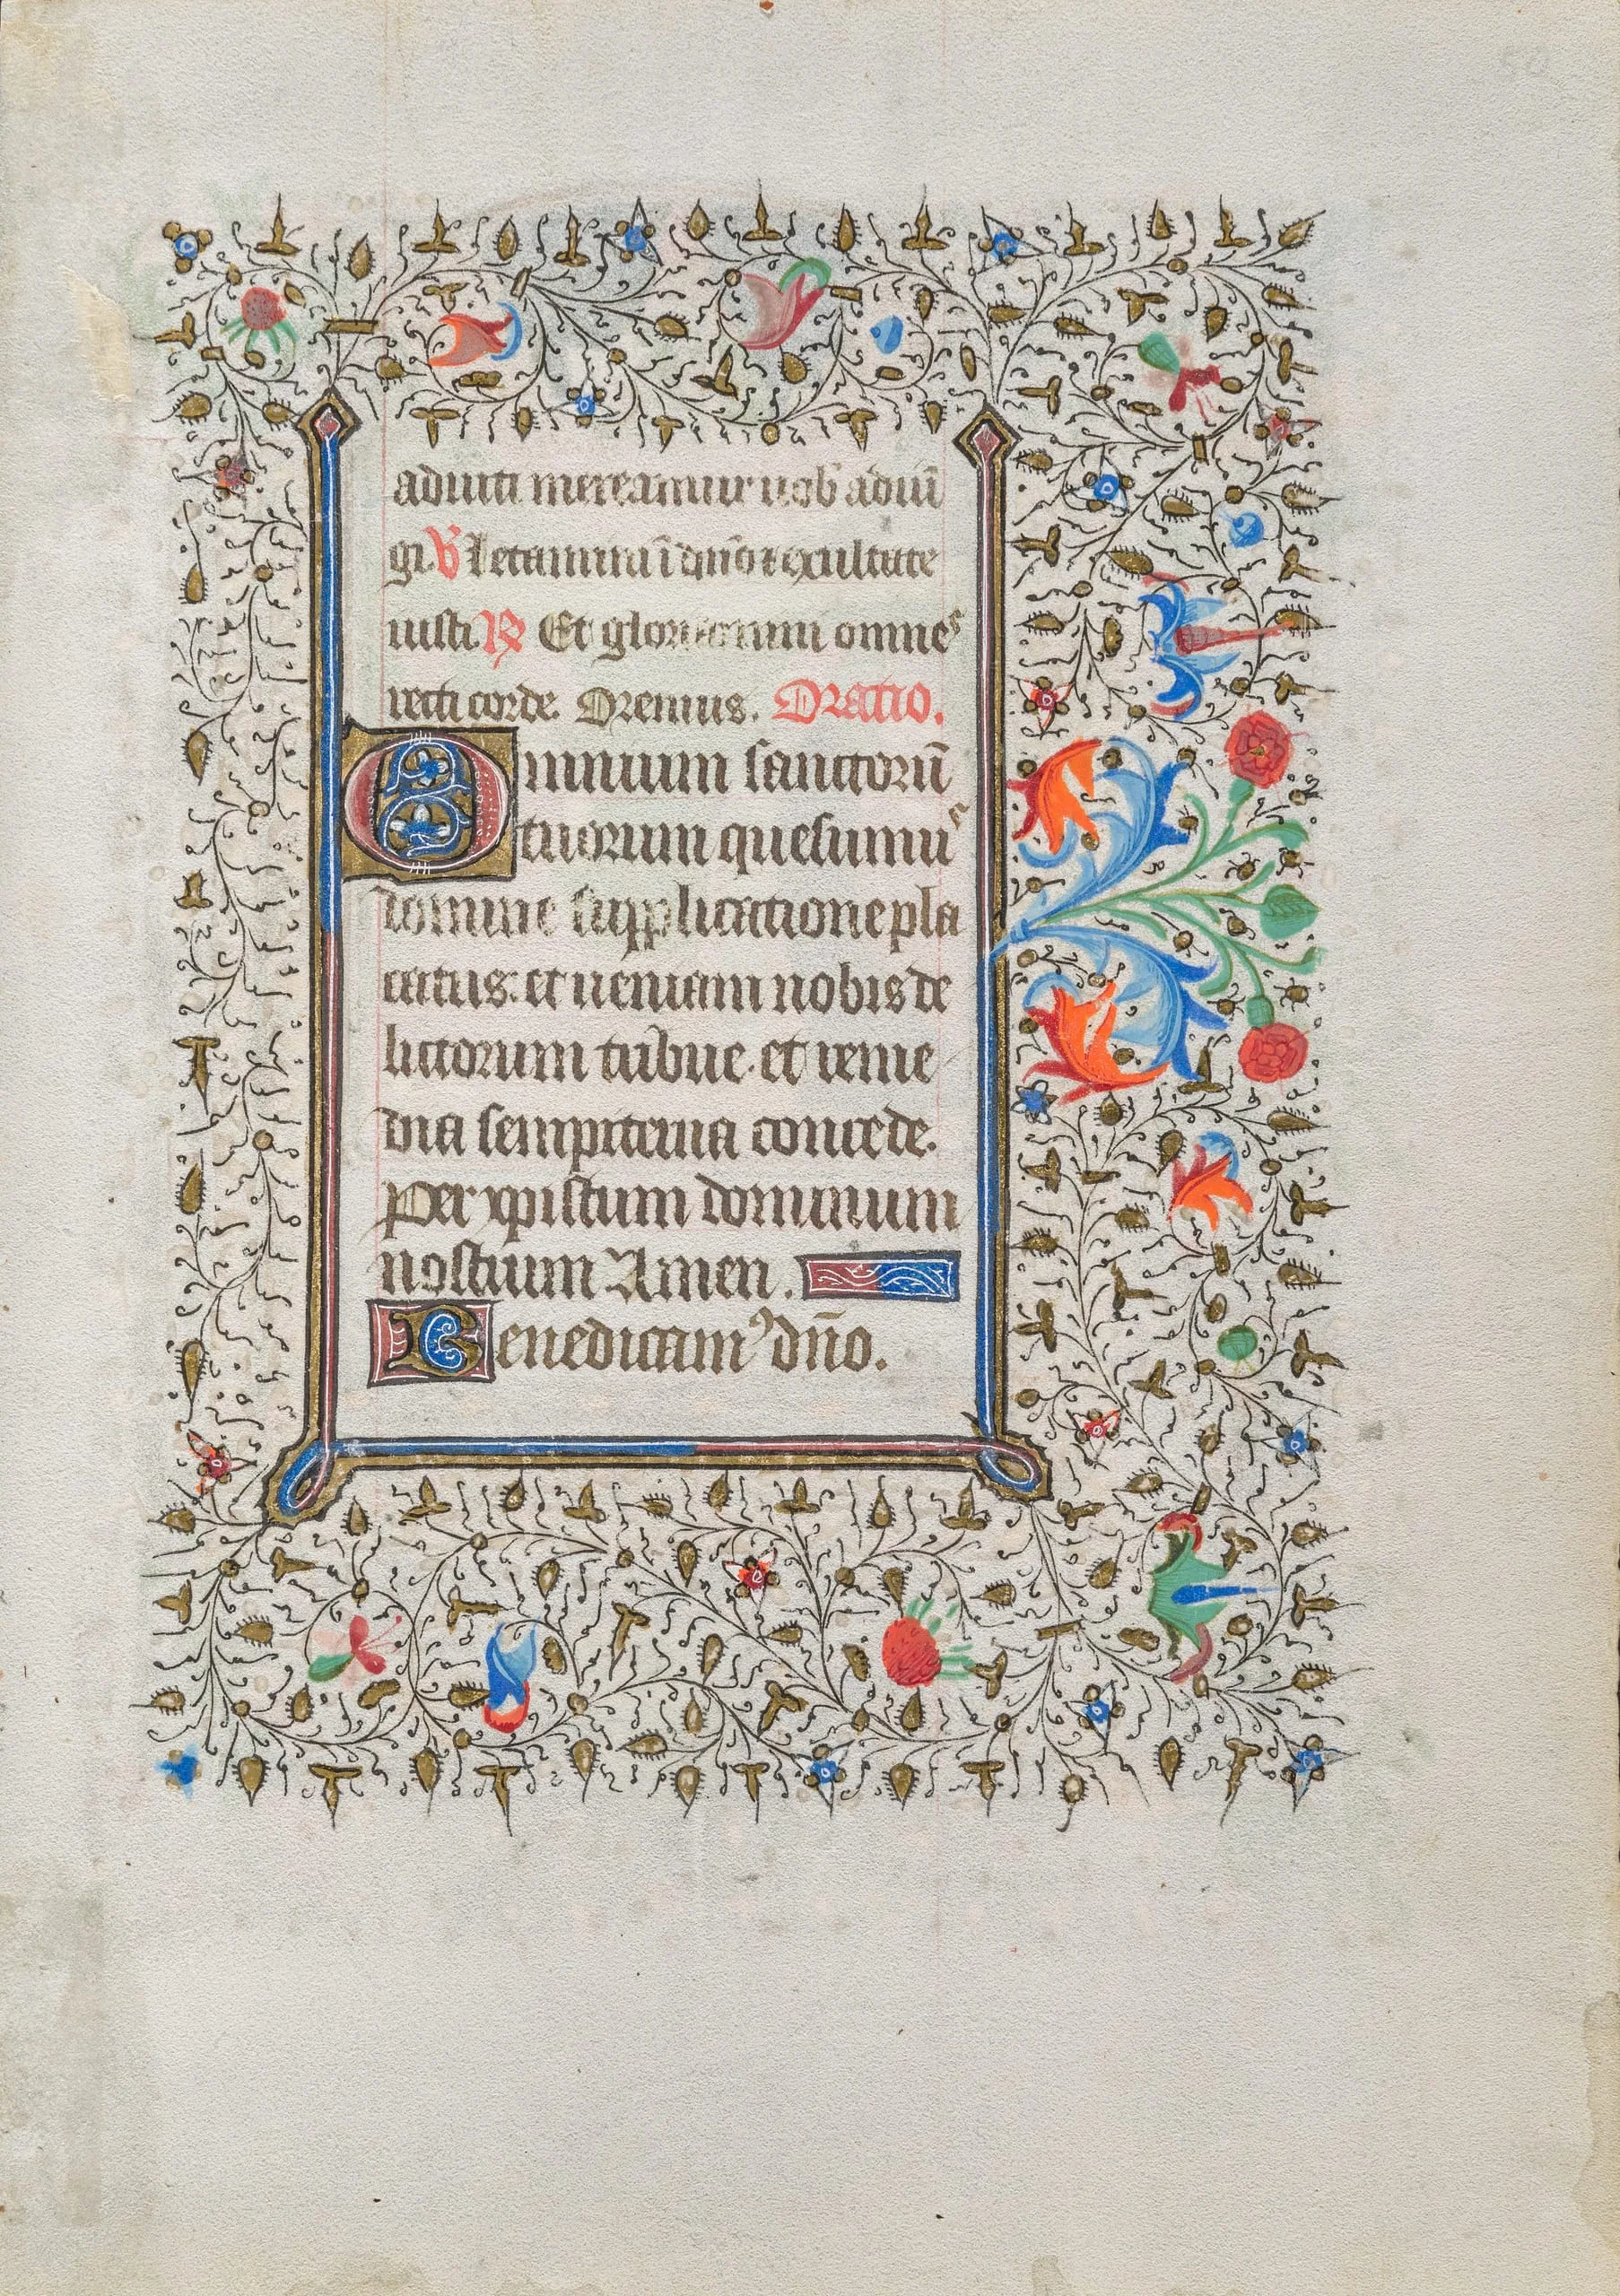 50
adiuti mereamur uob̄ adiū
gi. V̄ Letamini ī dn̄o ⁊ exultate
iusti R̄ Et gloriamini omnes
recti corde. Oremus. Oratio.
Omnium sanctorū
tuorum quesumus
domine supplicatione pla
catus: et ueniam nobis de
lictorum tribue. et reme
dia sempiterna concede.
Per xpistum dominum
nostrum Amen.
Benedicamꝰ dn̄o.